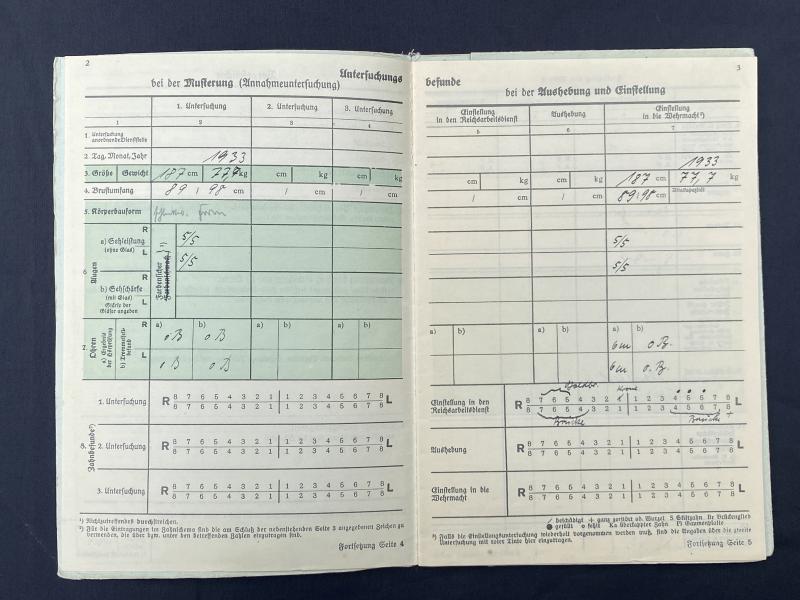 2
Untersuchungs
bei der Musterung (Annahmeuntersuchung)
1. Untersuchung
2. Untersuchung
3. Untersuchung
1
2
3
4
1. Untersuchung
anordnende Dienststelle
2. Tag, Monat, Jahr
1933
3. Größe | Gewicht
187 cm
kg
cm
kg
cm
kg
4. Brustumfang
89 / 98 cm
/ cm
/ cm
5. Körperbauform
6. Augen
a) Sehleistung
(ohne Glas)
R
5/5
L
5/5
b) Sehschärfe
(mit Glas)
Stärke der
Gläser angeben
R
L
Farbensicher
¹)
7. Ohren
a) Ergebnis
der Hörprüfung
b) Trommelfell-
befund
R
L
a)
b)
a)
b)
a)
b)
o B
o B
o B
o B
8. Zahnbefunde²)
1. Untersuchung
R 8 7 6 5 4 3 2 1 | 1 2 3 4 5 6 7 8 L
8 7 6 5 4 3 2 1 | 1 2 3 4 5 6 7 8
2. Untersuchung
R 8 7 6 5 4 3 2 1 | 1 2 3 4 5 6 7 8 L
8 7 6 5 4 3 2 1 | 1 2 3 4 5 6 7 8
3. Untersuchung
R 8 7 6 5 4 3 2 1 | 1 2 3 4 5 6 7 8 L
8 7 6 5 4 3 2 1 | 1 2 3 4 5 6 7 8
¹) Nichtzutreffendes durchstreichen.
²) Für die Eintragungen im Zahnschema sind die am Schluß der nebenstehenden Seite 3 angegebenen Zeichen zu
verwenden, die über bzw. unter den betreffenden Zahlen einzutragen sind.
Fortsetzung Seite 4
3
befunde
bei der Aushebung und Einstellung
Einstellung
in den Reichsarbeitsdienst
Aushebung
Einstellung
in die Wehrmacht³)
5
6
7
1933
cm
kg
cm
kg
187 cm
77,7 kg
/ cm
/ cm
89/98 cm
5/5
5/5
a)
b)
a)
b)
a)
b)
6m
o. B.
6m
o. B.
Einstellung in den
Reichsarbeitsdienst
Krone
R 8 7 6 5 4 3 2 1 | 1 2 3 4 5 6 7 8 L
8 7 6 5 4 3 2 1 | 1 2 3 4 5 6 7 8
Brücke
Brücke
Aushebung
R 8 7 6 5 4 3 2 1 | 1 2 3 4 5 6 7 8 L
8 7 6 5 4 3 2 1 | 1 2 3 4 5 6 7 8
Einstellung in die
Wehrmacht
R 8 7 6 5 4 3 2 1 | 1 2 3 4 5 6 7 8 L
8 7 6 5 4 3 2 1 | 1 2 3 4 5 6 7 8
/ beschädigt + ganz zerstört od. Wurzel S Stiftzahn Br Brückenglied
● gefüllt o fehlt Ka überkappter Zahn Pl Gaumenplatte
³) Falls die Einstellungsuntersuchung wiederholt vorgenommen werden muß, sind die Angaben über die zweite
Untersuchung mit roter Tinte hier einzutragen.
Fortsetzung Seite 5